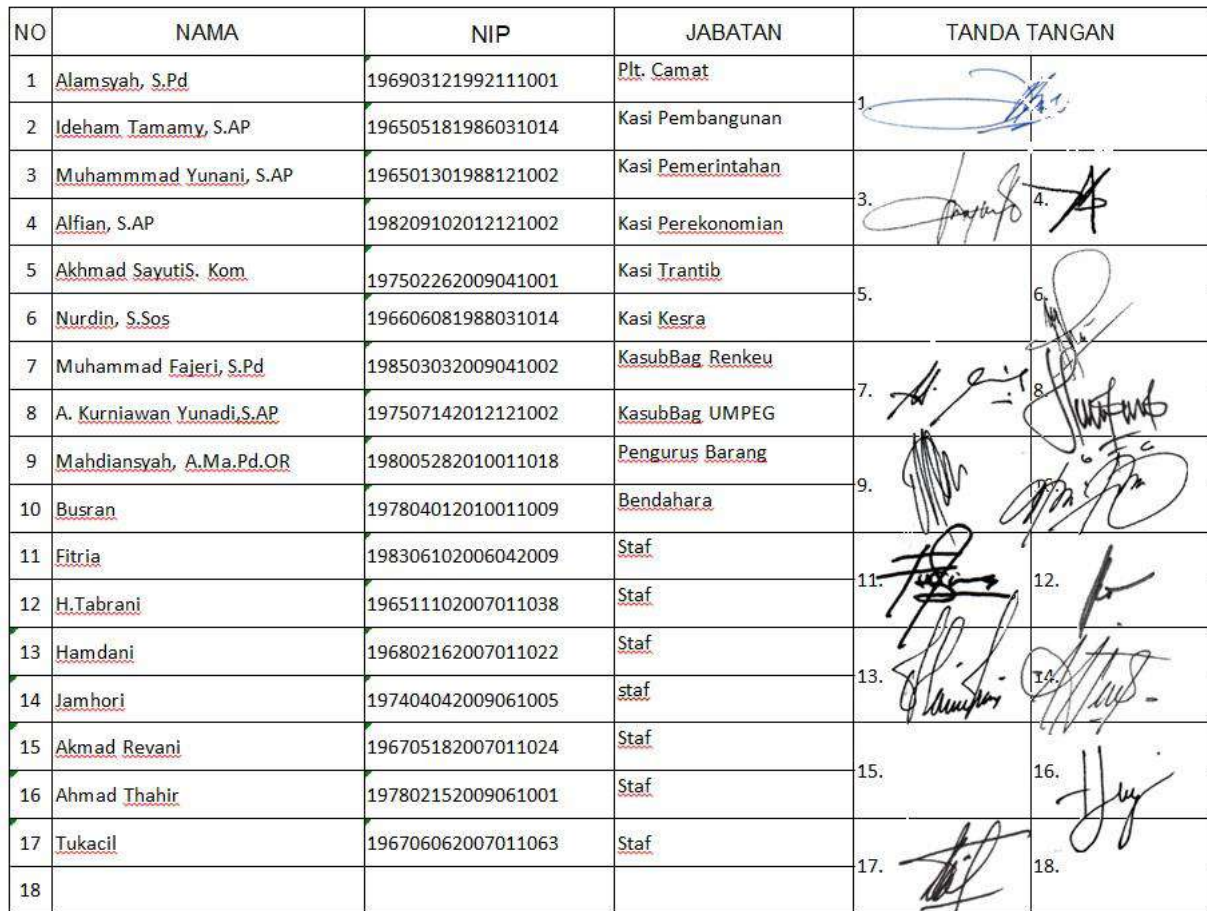 NO NAMA NIP JABATAN TANDA TANGAN
1 Alamsyah, S.Pd 196903121992111001 Plt. Camat 1.
2 Ideham Tamamy, S.AP 196505181986031014 Kasi Pembangunan
3 Muhammmad Yunani, S.AP 196501301988121002 Kasi Pemerintahan 3. 4.
4 Alfian, S.AP 198209102012121002 Kasi Perekonomian
5 Akhmad SayutiS. Kom 197502262009041001 Kasi Trantib 5. 6.
6 Nurdin, S.Sos 196606081988031014 Kasi Kesra
7 Muhammad Fajeri, S.Pd 198503032009041002 KasubBag Renkeu 7. 8.
8 A. Kurniawan Yunadi,S.AP 197507142012121002 KasubBag UMPEG
9 Mahdiansyah, A.Ma.Pd.OR 198005282010011018 Pengurus Barang 9. 10.
10 Busran 197804012010011009 Bendahara
11 Fitria 198306102006042009 Staf 11. 12.
12 H.Tabrani 196511102007011038 Staf
13 Hamdani 196802162007011022 Staf 13. 14.
14 Jamhori 197404042009061005 staf
15 Akmad Revani 196705182007011024 Staf 15. 16.
16 Ahmad Thahir 197802152009061001 Staf
17 Tukacil 196706062007011063 Staf 17. 18.
18